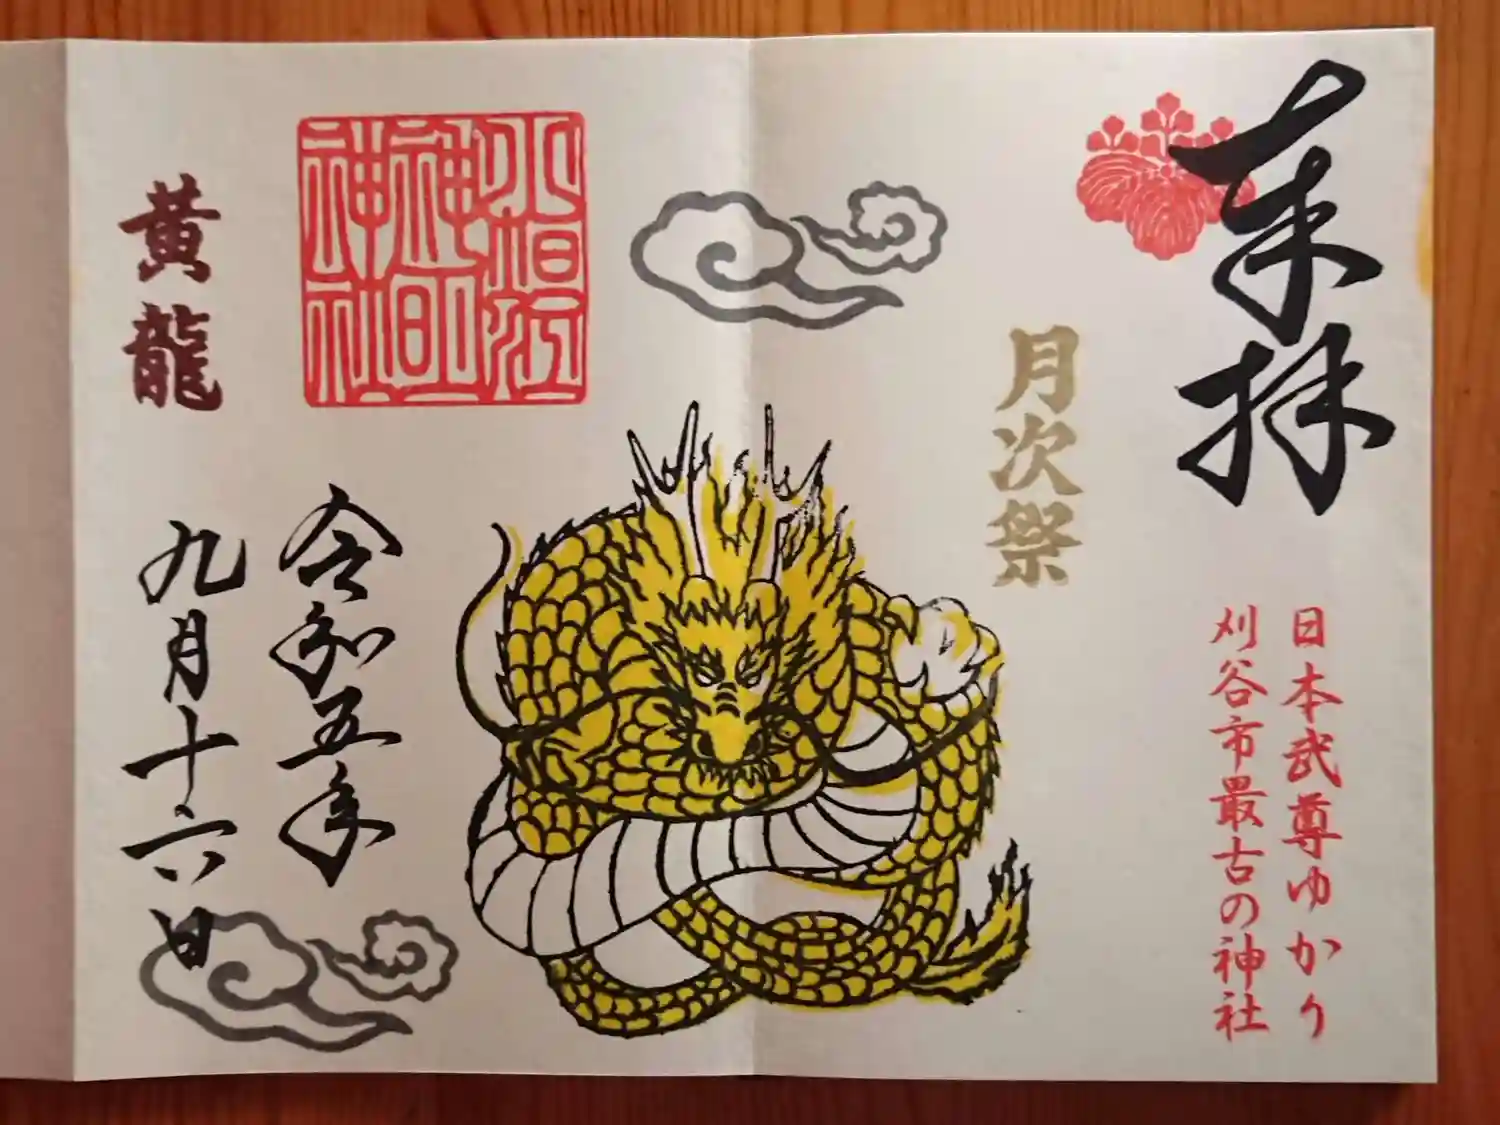 来拝
日本武尊ゆかり
刈谷市最古の神社
月次祭
令和五年
九月十六日
黄龍